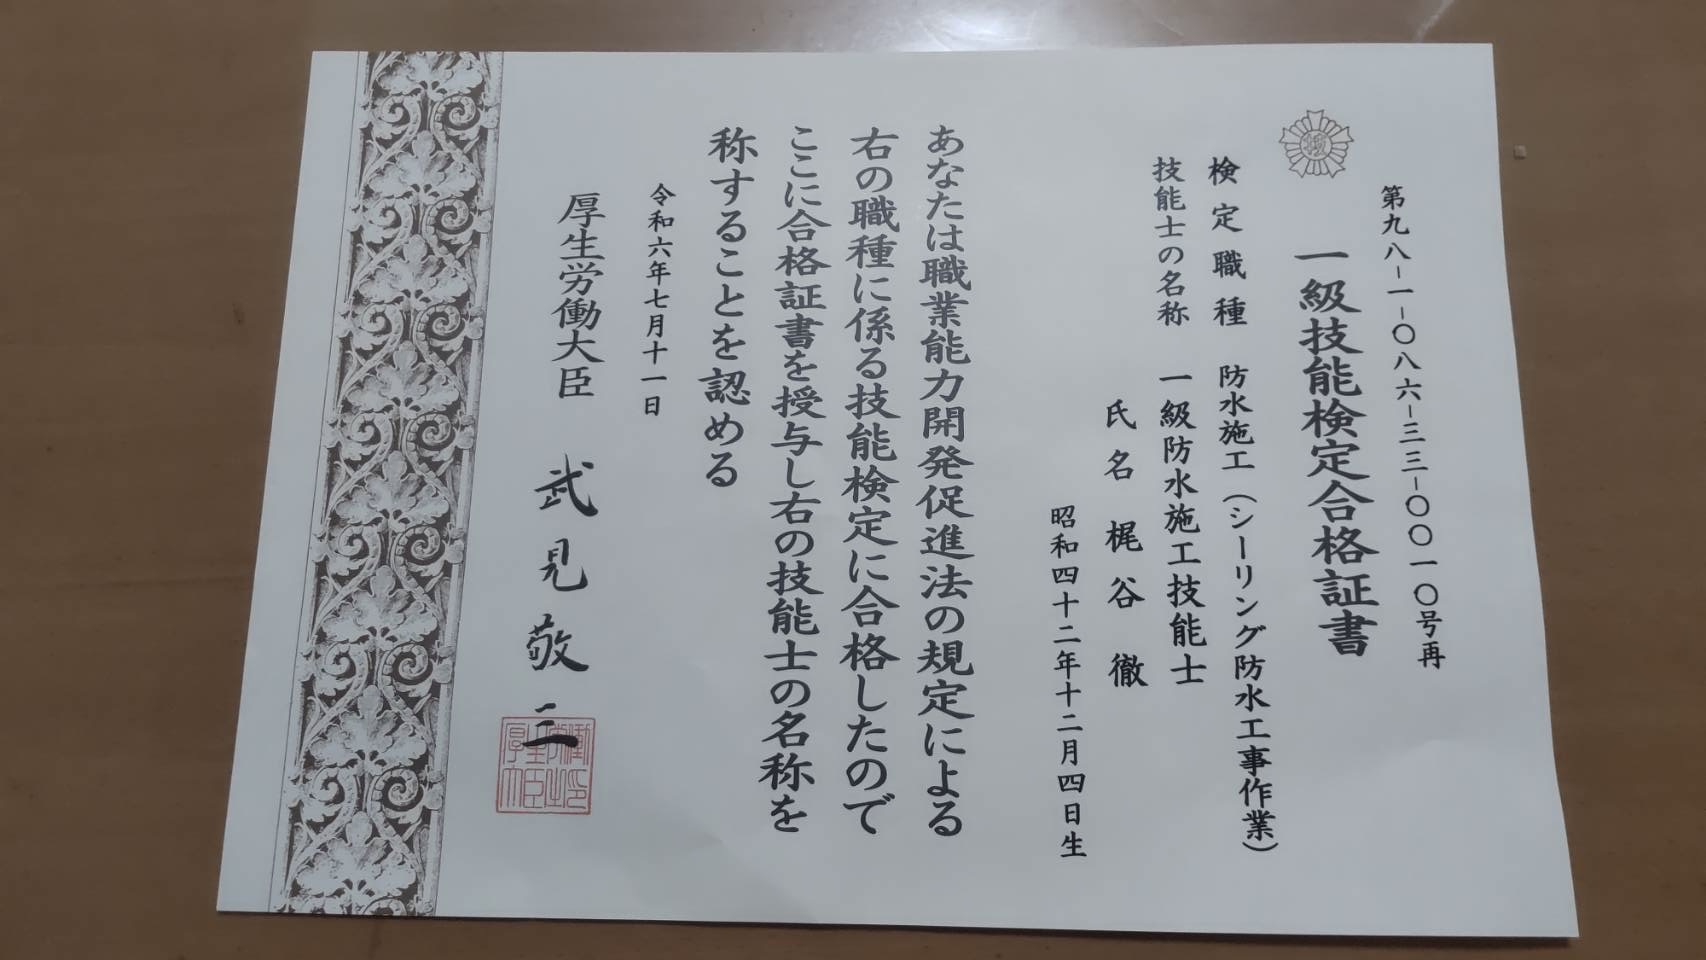 第九八-一-〇八六-三三-〇〇一〇号再
一級技能検定合格証書
検定職種 防水施工(シーリング防水工事作業)
技能士の名称 一級防水施工技能士
氏名 梶谷 徹
昭和四十二年十二月四日生
あなたは職業能力開発促進法の規定による
右の職種に係る技能検定に合格したので
ここに合格証書を授与し右の技能士の名称を
称することを認める
令和六年七月十一日
厚生労働大臣 武見敬三